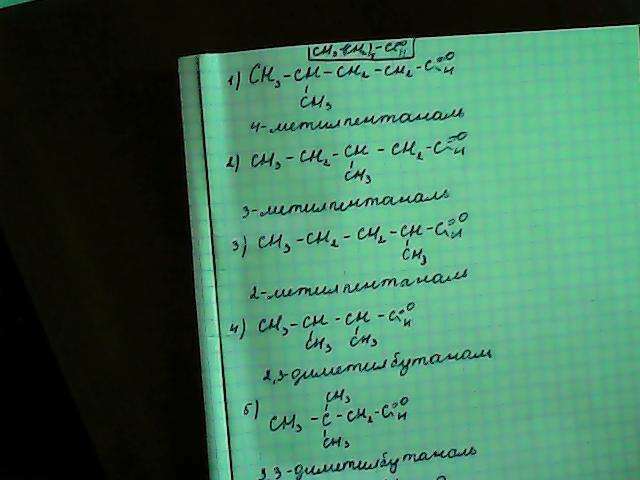 CH₃-(CH₂)₄-C=O H
1) CH₃-CH-CH₂-CH₂-C=O H
CH₃
4-метилпентаналь
2) CH₃-CH₂-CH-CH₂-C=O H
CH₃
3-метилпентаналь
3) CH₃-CH₂-CH₂-CH-C=O H
CH₃
2-метилпентаналь
4) CH₃-CH-CH-C=O H
CH₃ CH₃
2,3-диметилбутаналь
5) CH₃
CH₃-C-CH₂-C=O H
CH₃
3,3-диметилбутаналь